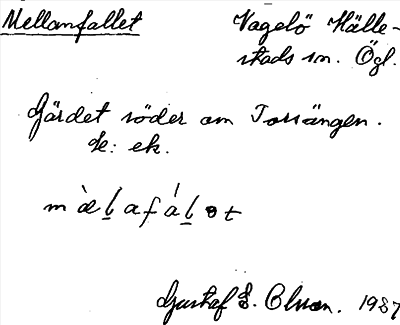 Mellanfallet Vagelö Hälle-
stads sn. Ögl.
Gärdet söder om Torsängen.
Se: ek.
Gustaf E. Olsson. 1937